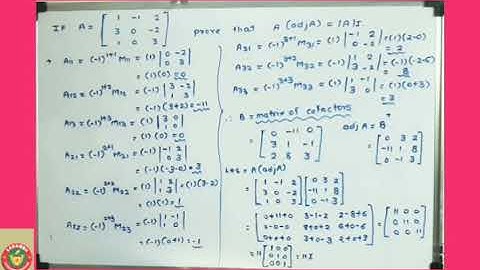 IF A = [ 1 -1 2
3 0 -2
1 0 3 ] prove that A (adj A) = |A| I.
→ A11 = (-1)^1+1 M11 = (1) | 0 -2
0 3 |
= (1)(0) = 0
A12 = (-1)^1+2 M12 = (-1) | 3 -2
1 3 |
= (-1)(9+2) = -11
A13 = (-1)^1+3 M13 = (1) | 3 0
1 0 |
= (1)(0) = 0
A21 = (-1)^2+1 M21 = (-1) | -1 2
0 3 |
= (-1)(-3-0) = 3
A22 = (-1)^2+2 M22 = (1) | 1 2
1 3 | = (1)(3-2)
= (1)(1) = 1
A23 = (-1)^2+3 M23 = (-1) | 1 -1
1 0 |
= (-1)(0+1) = -1
A31 = (-1)^3+1 M31 = (1) | -1 2
0 -2 | = (1)(2-0)
= 2
A32 = (-1)^3+2 M32 = (-1) | 1 2
3 -2 | = (-1)(-2-6)
= 8
A33 = (-1)^3+3 M33 = (1) | 1 -1
3 0 | = (1)(0+3)
= 3
∴ B = matrix of cofactors
= [ 0 -11 0
3 1 -1
2 8 3 ]
adj A = B^T
= [ 0 3 2
-11 1 8
0 -1 3 ]
LHS = A(adj A)
= [ 1 -1 2
3 0 -2
1 0 3 ] [ 0 3 2
-11 1 8
0 -1 3 ]
= [ 0+11+0 3-1-2 2-8+6
0-0-0 9+0+2 6+0-6
0+0+0 3+0-3 2+0+9 ] = [ 11 0 0
0 11 0
0 0 11 ]
= 11 [ 1 0 0
0 1 0
0 0 1 ] = 11 I